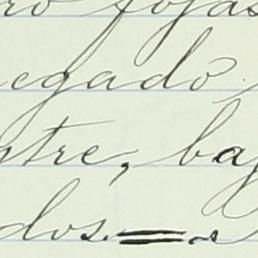 ro fojas
egado,
stre, baj
dos.=